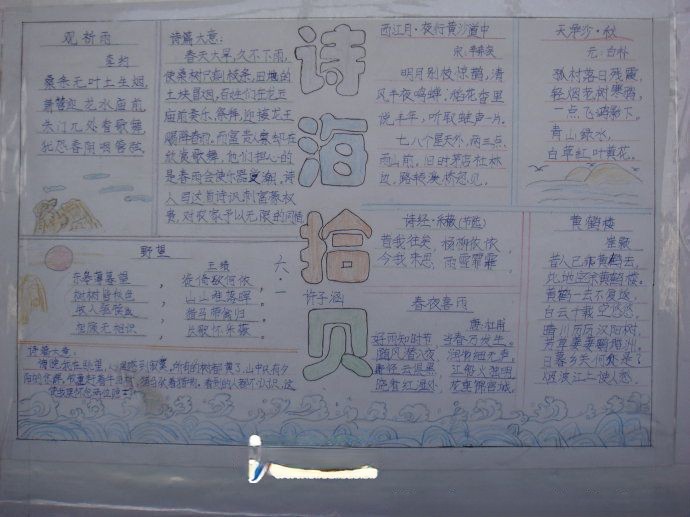 观祈雨
李约
桑条无叶土生烟,
箫管迎龙水庙前
朱门几处看歌舞,
犹恐春阴咽管弦
诗篇大意:
春天大旱,久不下雨,
使桑树只剩枝条,田地的
土块冒烟,百姓们在龙王
庙前奏乐、祭舞,迎接龙王
赐降春雨,而富贵人家却在
欣赏歌舞,他们担心的
是春雨会使乐器变潮,诗
人写这首诗讽刺富豪权
贵,对农家予以无限的同情
野望
王绩
东皋薄暮望,徙倚欲何依。
树树皆秋色,山山唯落晖。
牧人驱犊返,猎马带禽归。
相顾无相识,长歌怀采薇。
诗篇大意:
傍晚我在眺望,心里感到寂寞,所有的树都黄了,山中只有夕
诗海拾贝
六一
许子涵
西江月·夜行黄沙道中
宋:辛弃疾
明月别枝惊鹊,清
风半夜鸣蝉,稻花香里
说丰年,听取蛙声一片。
七八个星天外,两三点
雨山前,旧时茅店社林
边,路转溪桥忽见。
诗经·采薇(节选)
昔我往矣,杨柳依依,
今我来思,雨雪霏霏。
春夜喜雨
唐:杜甫
好雨知时节,当春乃发生。
随风潜入夜,润物细无声。
野径云俱黑,江船火独明。
晓看红湿处,花重锦官城。
天净沙·秋
元:白朴
孤村落日残霞,
轻烟老树寒鸦,
一点飞鸿影下。
青山绿水,
白草红叶黄花。
黄鹤楼
崔颢
昔人已乘黄鹤去,
此地空余黄鹤楼。
黄鹤一去不复返,
白云千载空悠悠。
晴川历历汉阳树,
芳草萋萋鹦鹉洲。
日暮乡关何处是?
烟波江上使人愁。